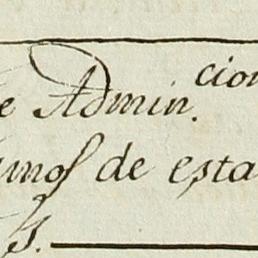 e Admin.cion
unos de esta
s.